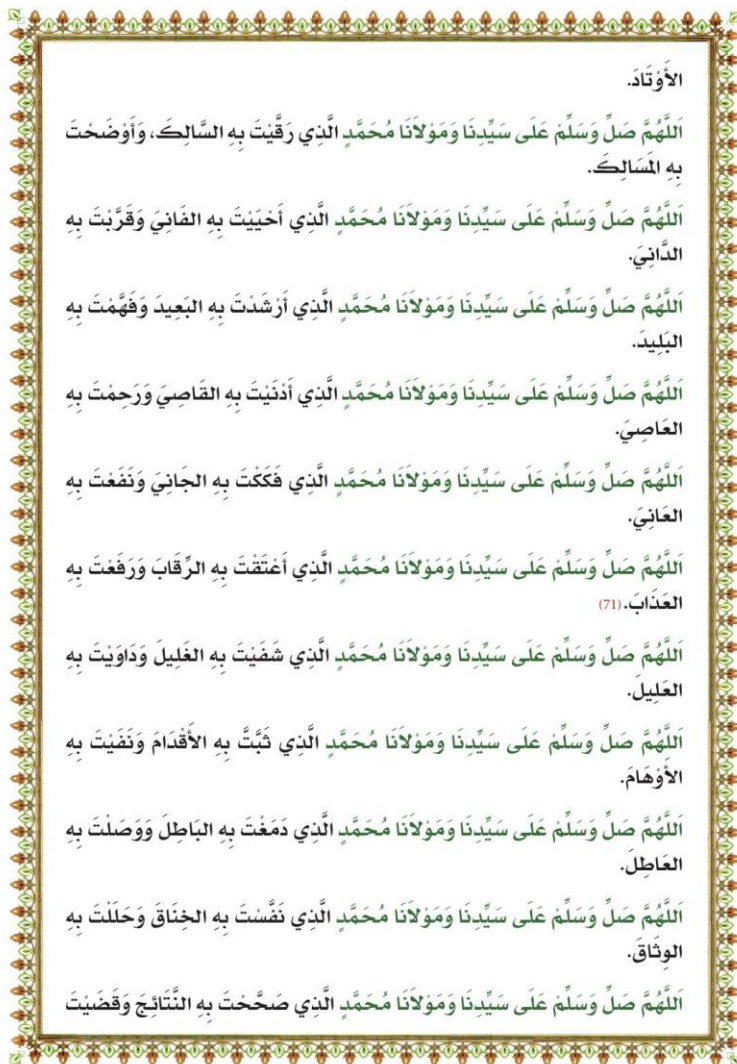 الأَوْتَادَ.
اَللَّهُمَّ صَلِّ وَسَلِّمْ عَلَى سَيِّدِنَا وَمَوْلَانَا مُحَمَّدٍ الَّذِي رَقَّيْتَ بِهِ السَّالِكَ، وَأَوْضَحْتَ
بِهِ المَسَالِكَ.
اَللَّهُمَّ صَلِّ وَسَلِّمْ عَلَى سَيِّدِنَا وَمَوْلَانَا مُحَمَّدٍ الَّذِي أَحْيَيْتَ بِهِ الفَانِيَ وَقَرَّبْتَ بِهِ
الدَّانِيَ.
اَللَّهُمَّ صَلِّ وَسَلِّمْ عَلَى سَيِّدِنَا وَمَوْلَانَا مُحَمَّدٍ الَّذِي أَرْشَدْتَ بِهِ البَعِيدَ وَفَهَّمْتَ بِهِ
البَلِيدَ.
اَللَّهُمَّ صَلِّ وَسَلِّمْ عَلَى سَيِّدِنَا وَمَوْلَانَا مُحَمَّدٍ الَّذِي أَدْنَيْتَ بِهِ القَاصِيَ وَرَحِمْتَ بِهِ
العَاصِيَ.
اَللَّهُمَّ صَلِّ وَسَلِّمْ عَلَى سَيِّدِنَا وَمَوْلَانَا مُحَمَّدٍ الَّذِي فَكَكْتَ بِهِ الجَانِيَ وَنَفَعْتَ بِهِ
العَانِيَ.
اَللَّهُمَّ صَلِّ وَسَلِّمْ عَلَى سَيِّدِنَا وَمَوْلَانَا مُحَمَّدٍ الَّذِي أَعْتَقْتَ بِهِ الرِّقَابَ وَرَفَعْتَ بِهِ
العَذَابَ. (71)
اَللَّهُمَّ صَلِّ وَسَلِّمْ عَلَى سَيِّدِنَا وَمَوْلَانَا مُحَمَّدٍ الَّذِي شَفَيْتَ بِهِ الغَلِيلَ وَدَاوَيْتَ بِهِ
العَلِيلَ.
اَللَّهُمَّ صَلِّ وَسَلِّمْ عَلَى سَيِّدِنَا وَمَوْلَانَا مُحَمَّدٍ الَّذِي ثَبَّتَّ بِهِ الأَقْدَامَ وَنَفَيْتَ بِهِ
الأَوْهَامَ.
اَللَّهُمَّ صَلِّ وَسَلِّمْ عَلَى سَيِّدِنَا وَمَوْلَانَا مُحَمَّدٍ الَّذِي دَمَغْتَ بِهِ البَاطِلَ وَوَصَلْتَ بِهِ
العَاطِلَ.
اَللَّهُمَّ صَلِّ وَسَلِّمْ عَلَى سَيِّدِنَا وَمَوْلَانَا مُحَمَّدٍ الَّذِي نَفَّسْتَ بِهِ الخِنَاقَ وَحَلَلْتَ بِهِ
الوِثَاقَ.
اَللَّهُمَّ صَلِّ وَسَلِّمْ عَلَى سَيِّدِنَا وَمَوْلَانَا مُحَمَّدٍ الَّذِي صَحَّحْتَ بِهِ النَّتَائِجَ وَقَضَيْتَ